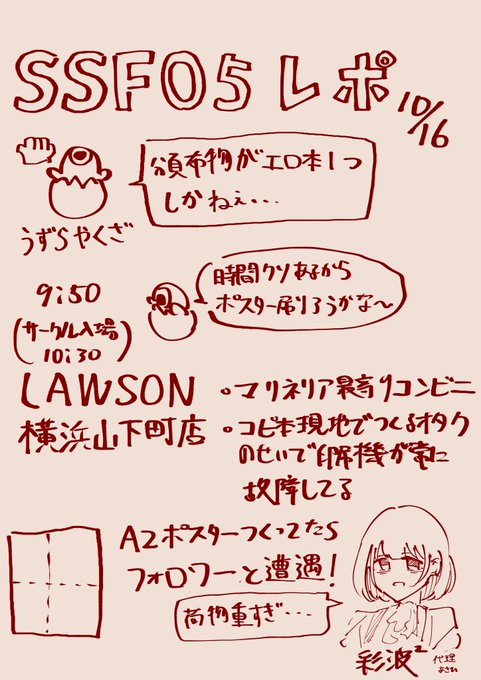 SSF05レポ
10/16
頒布物がエロ本1つ
しかねぇ...
うずらやくざ
時間クソあるから
ポスター刷ろうかな〜
9:50
(サークル入場
10:30)
LAWSON
横浜山下町店
。マリネリア最寄りコンビニ
。コピ本現地でつくるオタク
のせいで印刷機が常に
故障してる
A2ポスターつくってたら
フォロワーと遭遇!
荷物重すぎ...
彩波²
代理